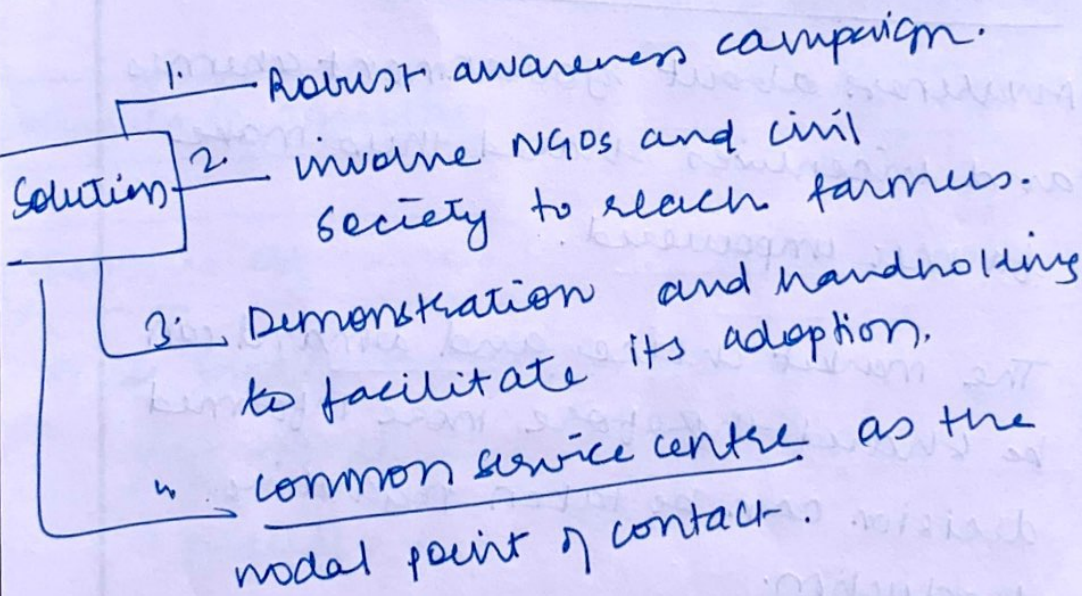 1. Robust awareness campaign.
Solution
2. involve NGOs and civil
society to reach farmers.
3. Demonstration and handholding
to facilitate its adoption.
4. common service centre as the
nodal point of contact.